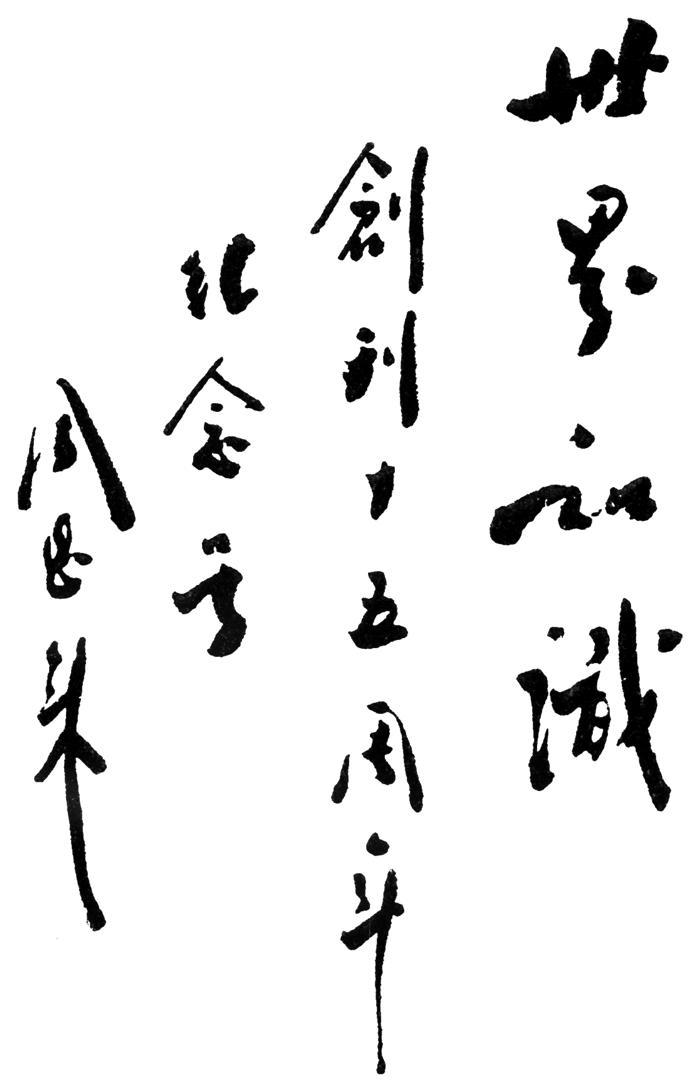 世界知識
創刊十五周年
纪念号
周恩来